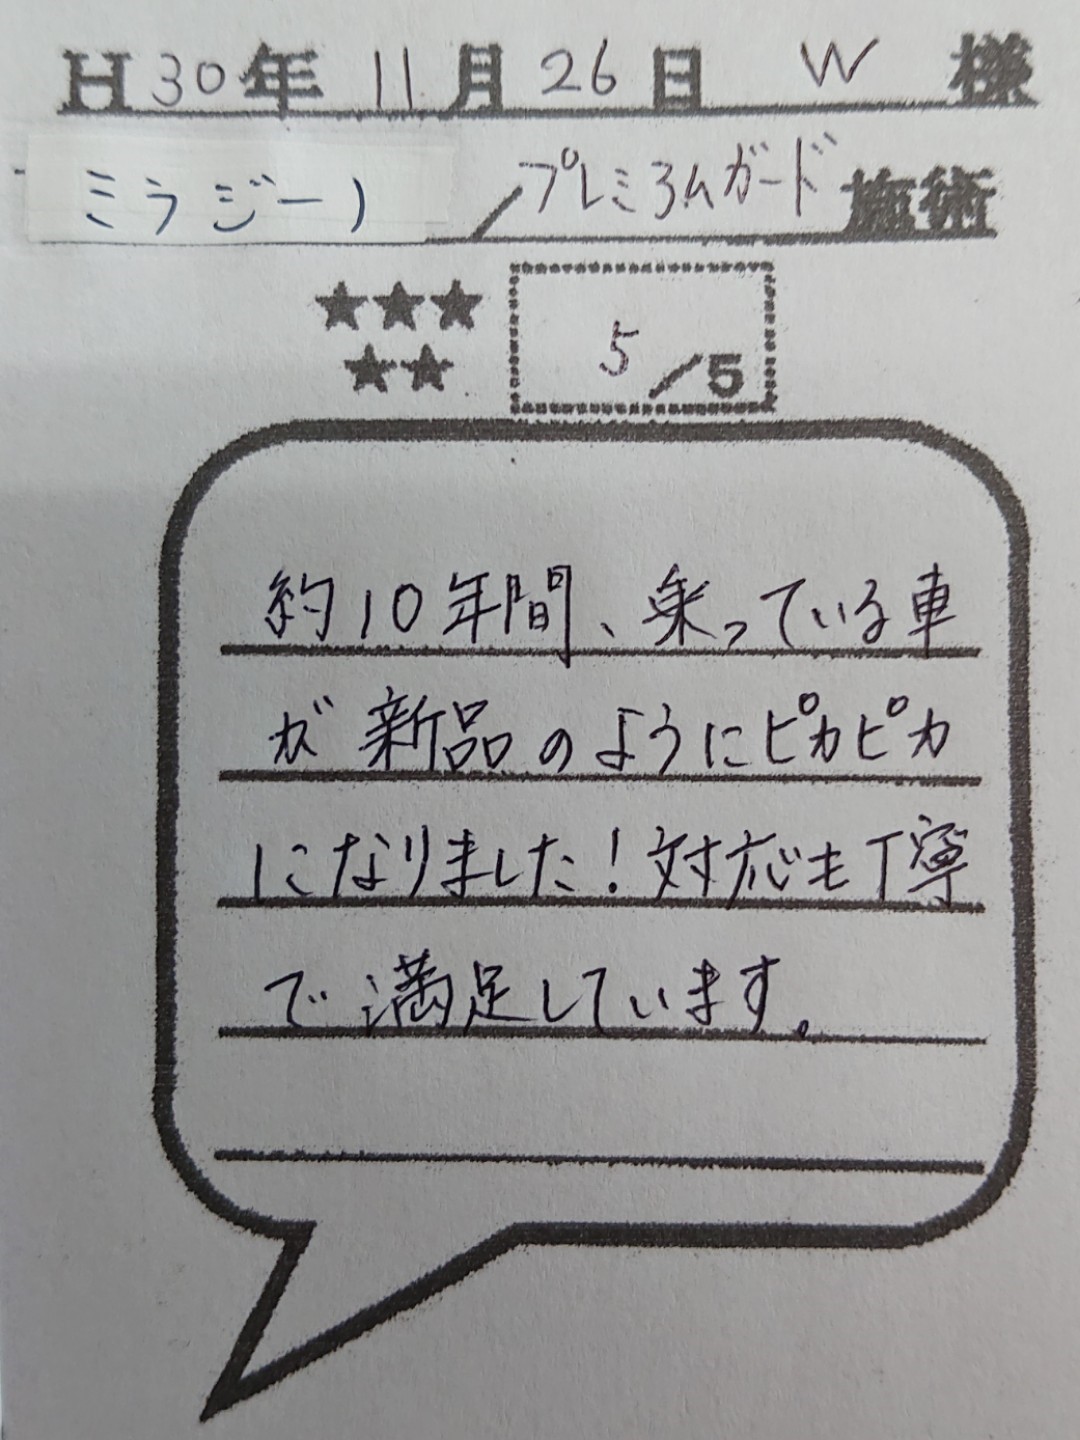 H30年 11月 26日 W 様
ミラジーノ／プレミアムガード 施術
★★★
★★
5／5
約10年間、乗っている車
が新品のようにピカピカ
になりました！対応も丁寧
で満足しています。